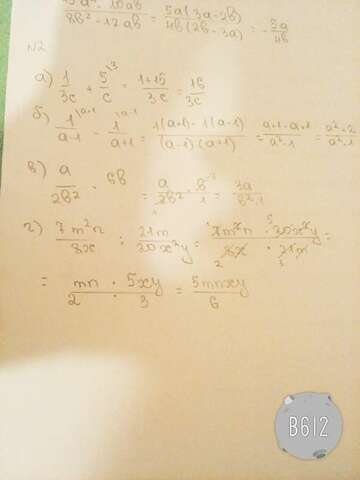 8b² - 12ab = 5a(3a-2b) / 4b(2b-3a) = - 5a / 4b
N2
а) 1/3c + 5/c \3 = 1+15 / 3c = 16/3c
б) 1/a-1 \a+1 - 1/a+1 \a-1 = 1(a+1) - 1(a-1) / (a-1)(a+1) = a+1-a+1 / a²-1 = a²+2 / a²-1
в) a/2b² · 6b = a/2b² · b/1 = 3a / b²·1
г) 7m²n / 8x : 21m / 20x²y = 7m²n · 20x²y / 8x · 21m =
= mn · 5xy / 2 · 3 = 5mnxy / 6
B612